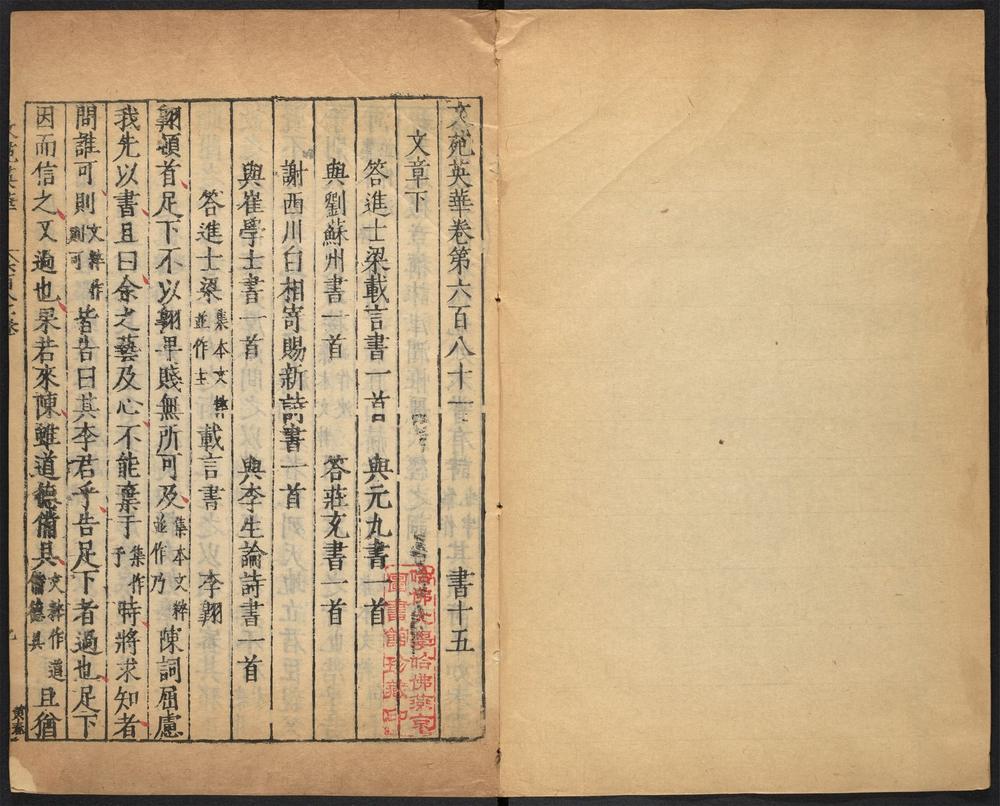 文苑英華卷第六百八十一　書十五
文章下
答進士梁載言書一首　與元九書一首
與劉蘇州書一首　答莊充書一首
謝西川白相寄賜新詩書一首
與崔學士書一首　與李生論詩書一首
答進士梁集本文粹並作王載言書　李翺
翺頓首足下不以翺卑賤無所可及集本文粹並作乃陳詞屈慮
我先以書且曰余之藝及心不能棄于集作予時將求知者
問誰可則文粹作則可皆告曰其李君乎告足下者過也足下
因而信之又過也果若來陳雖道德備具文粹作道備德具且猶
哈佛大學哈佛燕京
圖書館珍藏印